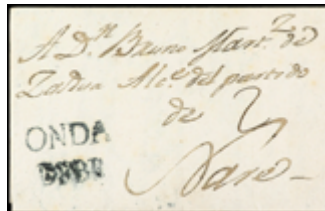 A Dn. Bruno Marz. de
Zadua Alc.e del partido
de 2
Nare
ONDA
DEBE